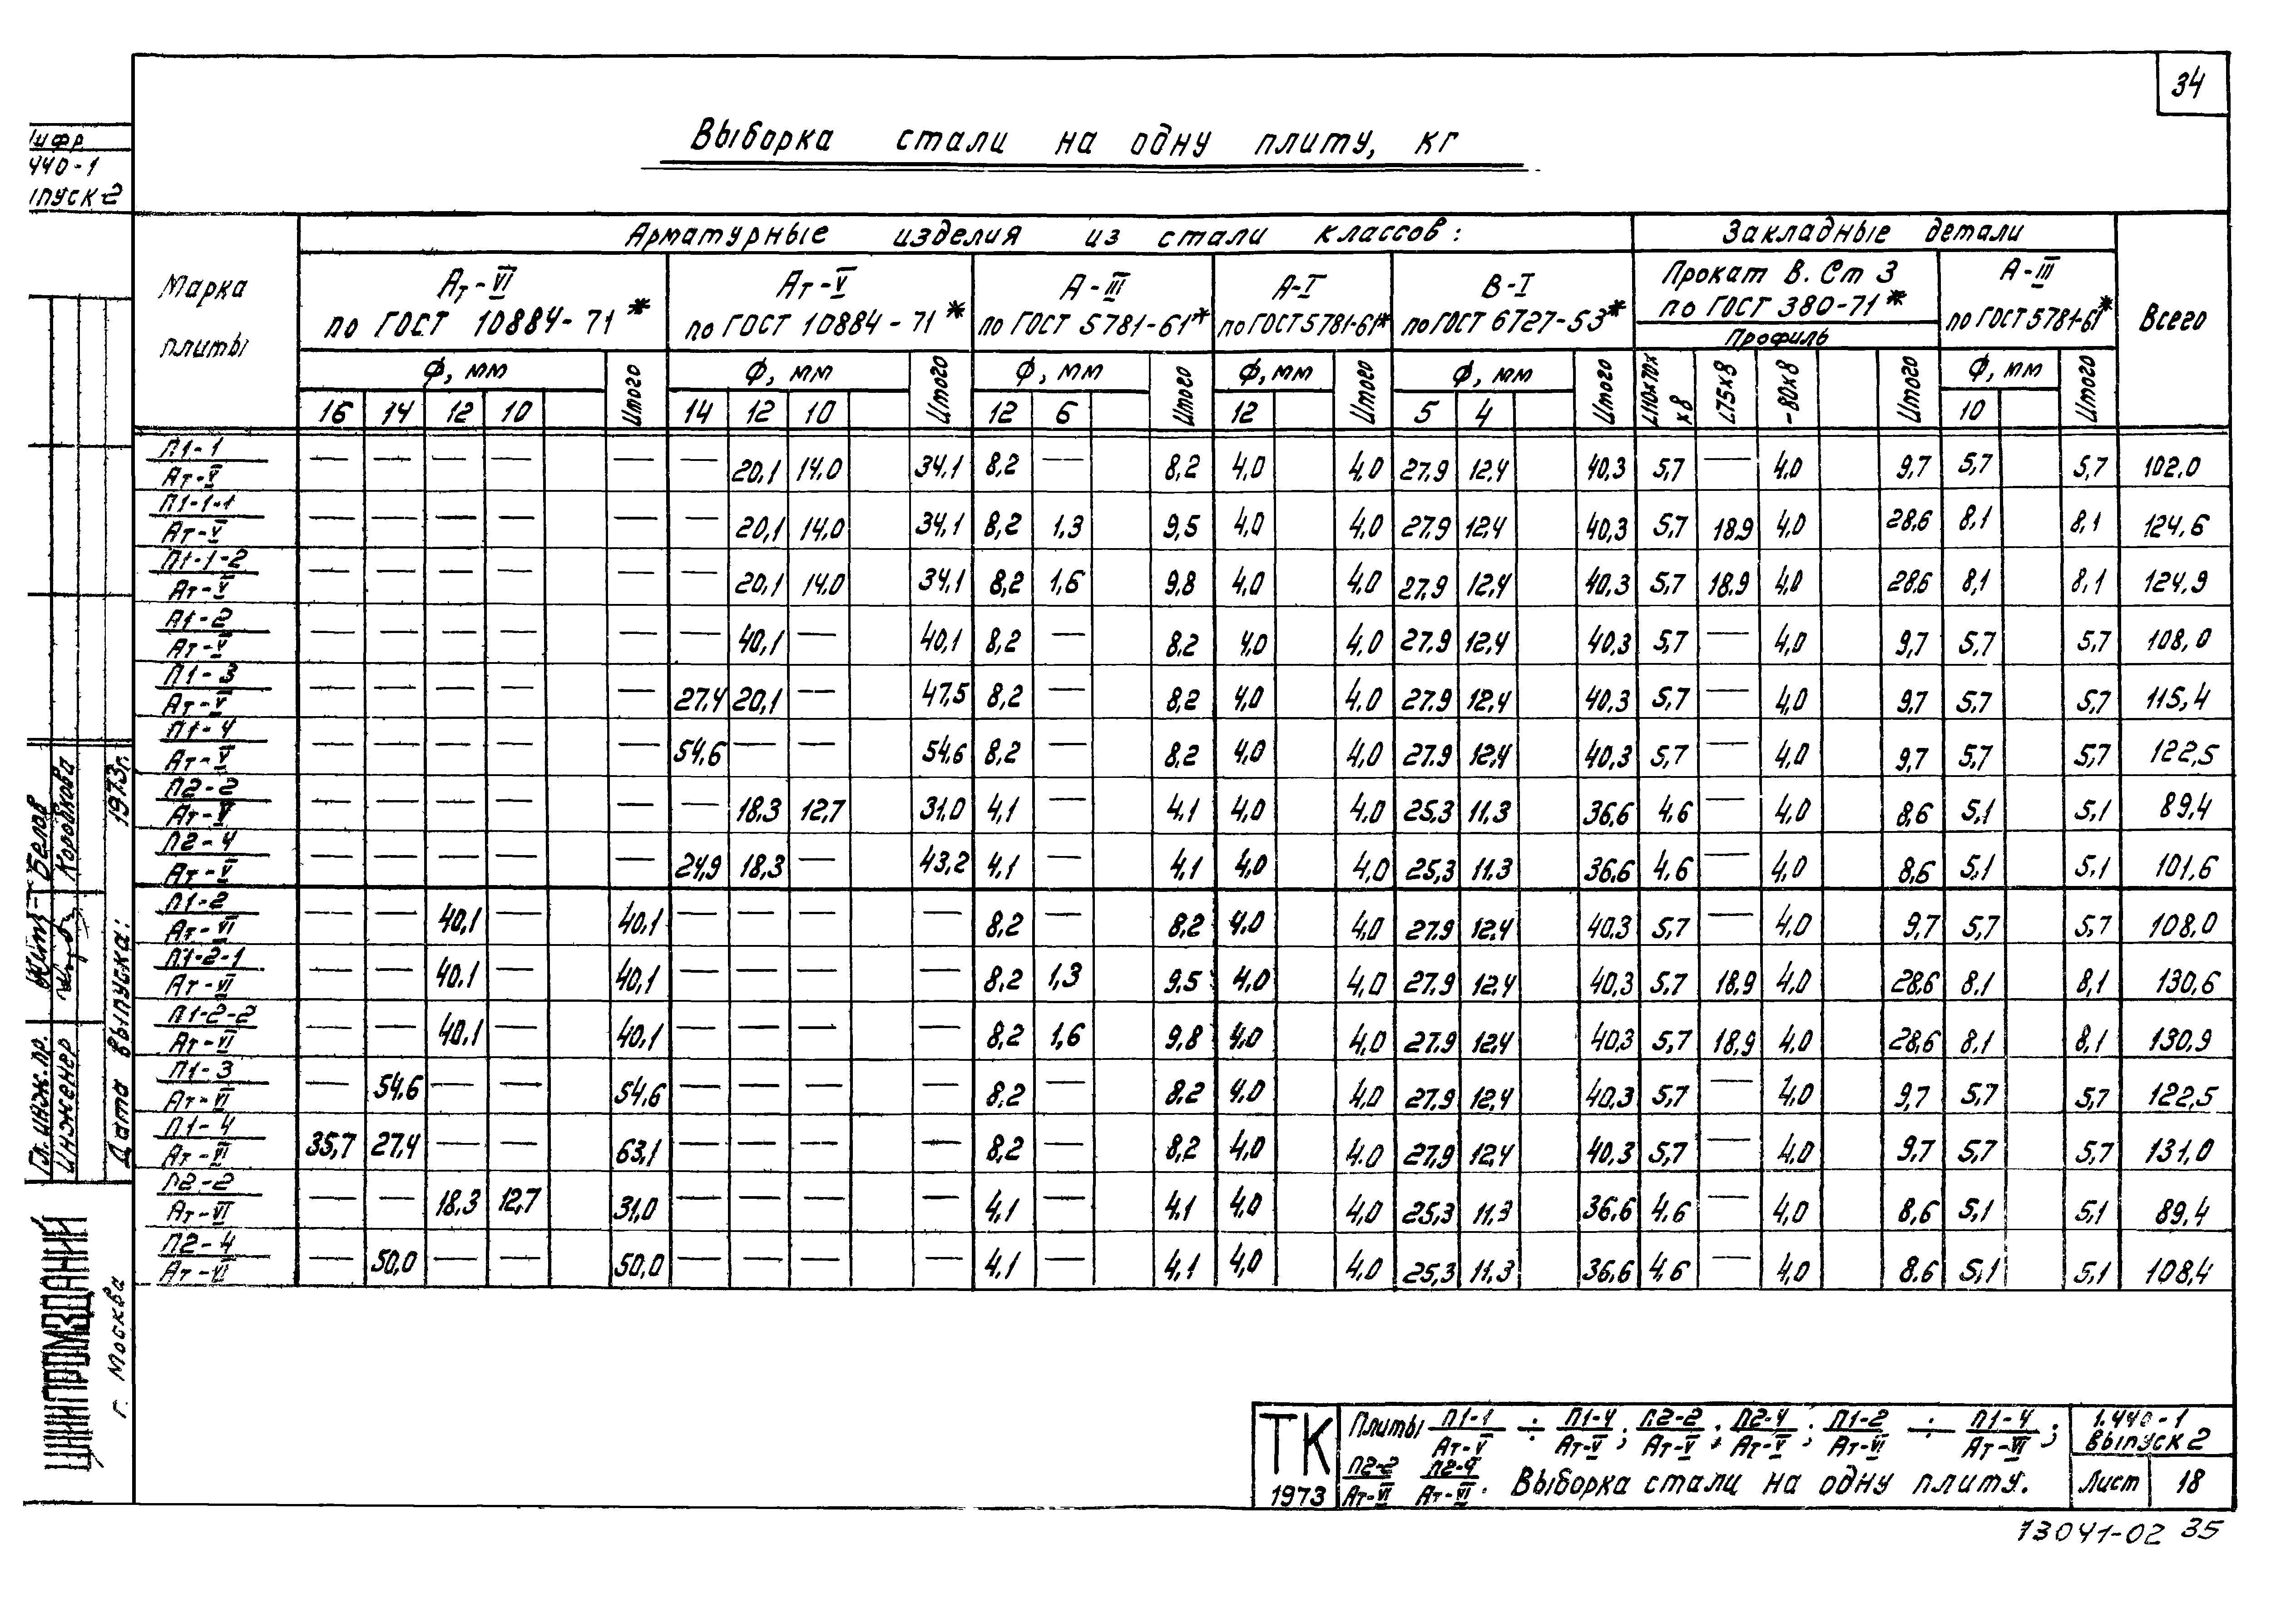 34
Выборка стали на одну плиту, кг
440-1
Марка плиты
Арматурные изделия из стали классов:
Закладные детали
Всего
Ат-VI по ГОСТ 10884-71*
Ат-V по ГОСТ 10884-71*
А-III по ГОСТ 5781-61*
А-I по ГОСТ 5781-61*
В-I по ГОСТ 6727-53*
Прокат В.Ст 3 по ГОСТ 380-71*
Профиль
А-III по ГОСТ 5781-61*
Ф, мм Итого Ф, мм Итого Ф, мм Итого Ф, мм Итого Ф, мм Итого L110х70х х8 L75х8 -80х8 Итого Ф, мм Итого
16 14 12 10 14 12 10 12 6 12 5 4 10
П1-1 Ат-V — — — — — — 20,1 14.0 34.1 8.2 — 8,2 4.0 4.0 27.9 12.4 40.3 5,7 — 4.0 9.7 5.7 5.7 102.0
П1-1-1 Ат-V — — — — — — 20,1 14.0 34.1 8.2 1,3 9,5 4.0 4.0 27.9 12.4 40,3 5.7 18.9 4.0 28.6 8.1 8,1 124,6
П1-1-2 Ат-V — — — — — — 20,1 14.0 34.1 8.2 1,6 9.8 4.0 4.0 27.9 12.4 40.3 5.7 18.9 4.0 28.6 8,1 8,1 124,9
П1-2 Ат-V — — — — — — 40,1 — 40,1 8.2 — 8.2 4.0 4.0 27.9 12.4 40.3 5,7 — 4.0 9,7 5,7 5.7 108,0
П1-3 Ат-V — — — — — 27.4 20,1 — 47.5 8.2 — 8.2 4.0 4.0 27.9 12.4 40.3 5.7 — 4.0 9.7 5.7 5,7 115,4
П1-4 Ат-V — — — — — 54.6 — — 54.6 8.2 — 8.2 4.0 4.0 27.9 12.4 40.3 5,7 — 4.0 9,7 5,7 5,7 122,5
П2-2 Ат-V — — — — — — 18.3 12,7 31.0 4.1 — 4.1 4.0 4.0 25.3 11.3 36.6 4.6 — 4.0 8,6 5,1 5,1 89,4
П2-4 Ат-V — — — — — 24,9 18,3 — 43,2 4.1 — 4,1 4,0 4.0 25,3 11.3 36.6 4.6 — 4.0 8,6 5,1 5,1 101,6
П1-2 Ат-VI — — 40.1 — 40.1 — — — — 8.2 — 8.2 4.0 4.0 27.9 12.4 40.3 5.7 — 4.0 9,7 5,7 5.7 108.0
П1-2-1 Ат-VI — — 40.1 — 40,1 — — — — 8.2 1,3 9.5 4.0 4,0 27.9 12.4 40,3 5.7 18,9 4.0 28.6 8.1 8,1 130,6
П1-2-2 Ат-VI — — 40.1 — 40.1 — — — — 8.2 1,6 9.8 4.0 4.0 27.9 12.4 40.3 5.7 18.9 4.0 28,6 8.1 8,1 130,9
П1-3 Ат-VI — 54.6 — — 54.6 — — — — 8.2 — 8.2 4.0 4.0 27.9 12.4 40,3 5,7 — 4.0 9,7 5,7 5,7 122,5
П1-4 Ат-VI 35,7 27.4 — — 63,1 — — — — 8,2 — 8,2 4.0 4.0 27.9 12.4 40,3 5,7 — 4.0 9.7 5,7 5,7 131,0
П2-2 Ат-VI — — 18.3 12,7 31.0 — — — — 4.1 — 4.1 4.0 4.0 25.3 11.3 36.6 4.6 — 4.0 8.6 5,1 5,1 89.4
П2-4 Ат-VI — 50.0 — — 50,0 — — — — 4.1 — 4.1 4.0 4.0 25,3 11.3 36.6 4,6 — 4,0 8.6 5,1 5,1 108,4
Гл. инж. пр. Белов
Инженер Коробкова
Дата выпуска: 1973г.
ЦНИИПРОМЗДАНИЙ
г. Москва
ТК 1973
Плиты П1-1/Ат-V ÷ П1-4/Ат-V; П2-2/Ат-V; П2-4/Ат-V; П1-2/Ат-VI ÷ П1-4/Ат-VI;
П2-2/Ат-VI П2-4/Ат-VI. Выборка стали на одну плиту.
1.440-1
выпуск 2
Лист 18
13041-02 35